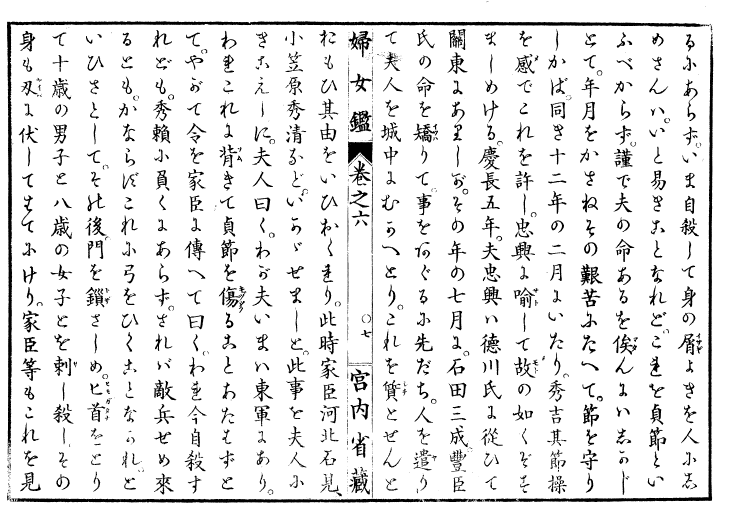 るにあらず。いま自殺して身の屑よきを人にし
めさんハ。いと易きことなれど。これを貞節とい
ふべからず。謹で夫の命あるを俟んにハしかじ
とて。年月をかさねその艱苦にたへて。節を守り
しかば。同き十二年の二月にいたり。秀吉其節操
を感でこれを許し。忠興に喩して故の如くぞす
ましめける。慶長五年。夫忠興ハ徳川氏に從ひて
關東にありしが。その年の七月に。石田三成豐臣
氏の命を矯りて。事をあぐるに先だち。人を遣り
て夫人を城中にむかへとり。これを質とせんと
婦女鑑 卷之六 〇七 宮内省藏
おもひ其由をいひおくれり。此時家臣河北石見、
小笠原秀清など。いかゞせましと。此事を夫人に
きこえしに。夫人曰く。わが夫いまハ東軍にあり。
われこれに背きて貞節を傷ることあたはずと
て。やがて今を家臣に傳へて曰く。われ今自殺す
れども。秀頼に負くにあらず。されバ敵兵せめ來
るとも。かならずこれに弓をひくことなかれ。と
いひさとして。その後門を鎖さしめ。匕首をとり
て十歳の男子と八歳の女子とを刺し殺しその
身も刃に伏してはてにけり。家臣等もこれを見